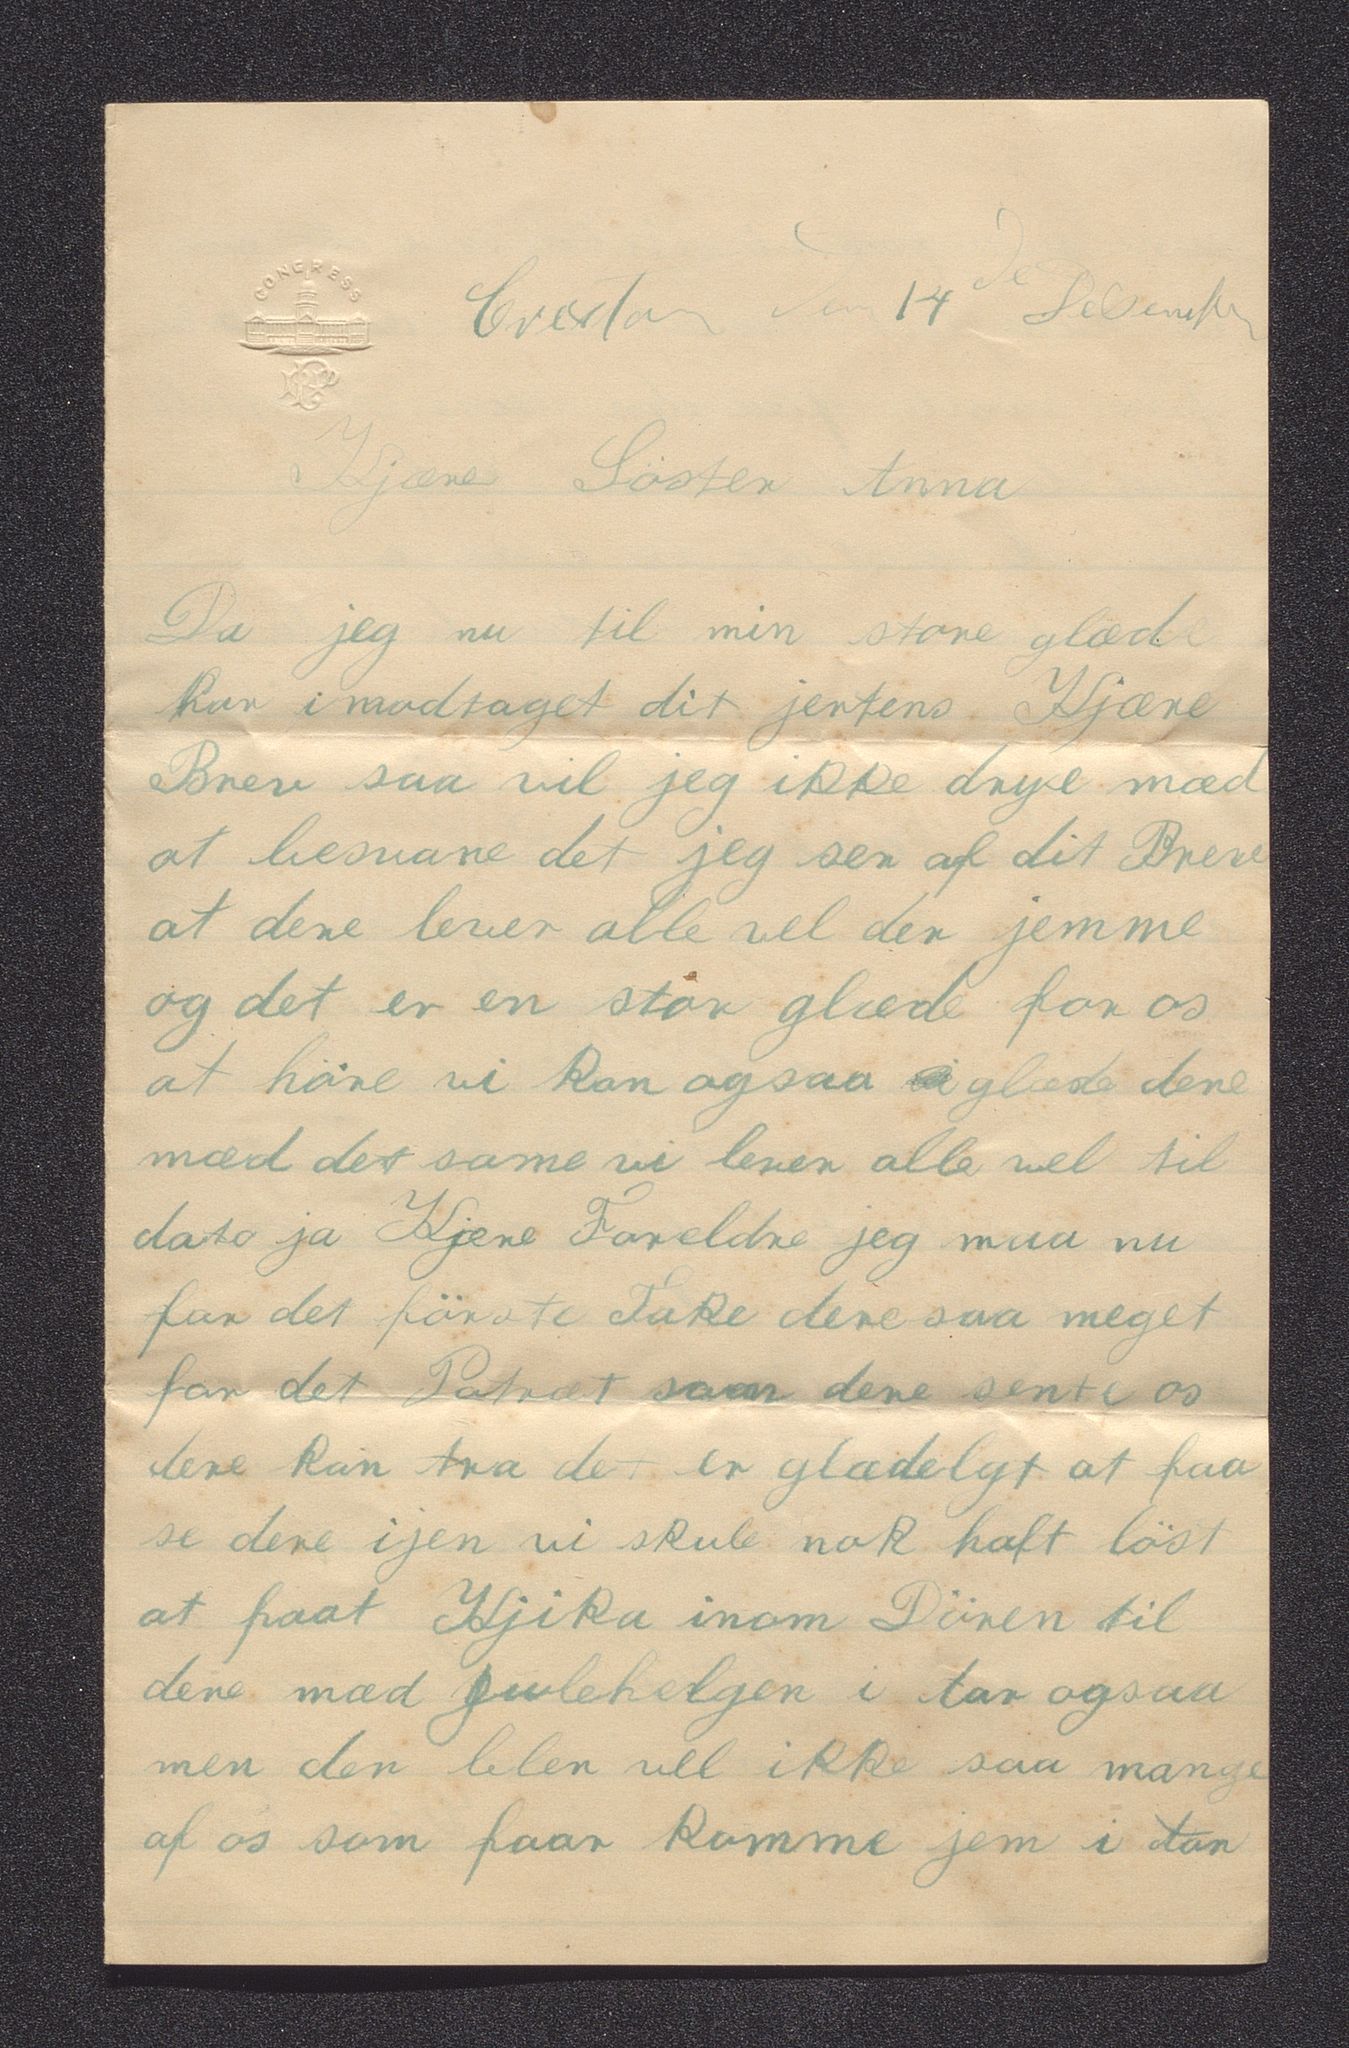 CONGRESS
Creston den 14de Desember
Kjære Söster Anna
Da jeg nu til min store glæde
har imodtaget dit jertens Kjære
Brev saa vil jeg ikke drye mæd
at besvare det jeg ser af dit Brev
at dere lever alle vel der jemme
og det er en stor glæde for os
at höre vi kan ogsaa glæde dere
mæd det same vi lever alle vel til
dato ja Kjere Foreldre jeg maa nu
for det förste Take dere saa meget
for det Potræt som dere sente os
dere kan tra det er glædelgt at faa
se dere ijen vi skule nok haft löst
at faat Kjika inom Dören til
dere mæd julehelgen i aar ogsaa
men der bler vel ikke saa mange
af os som faar komme jem i aar